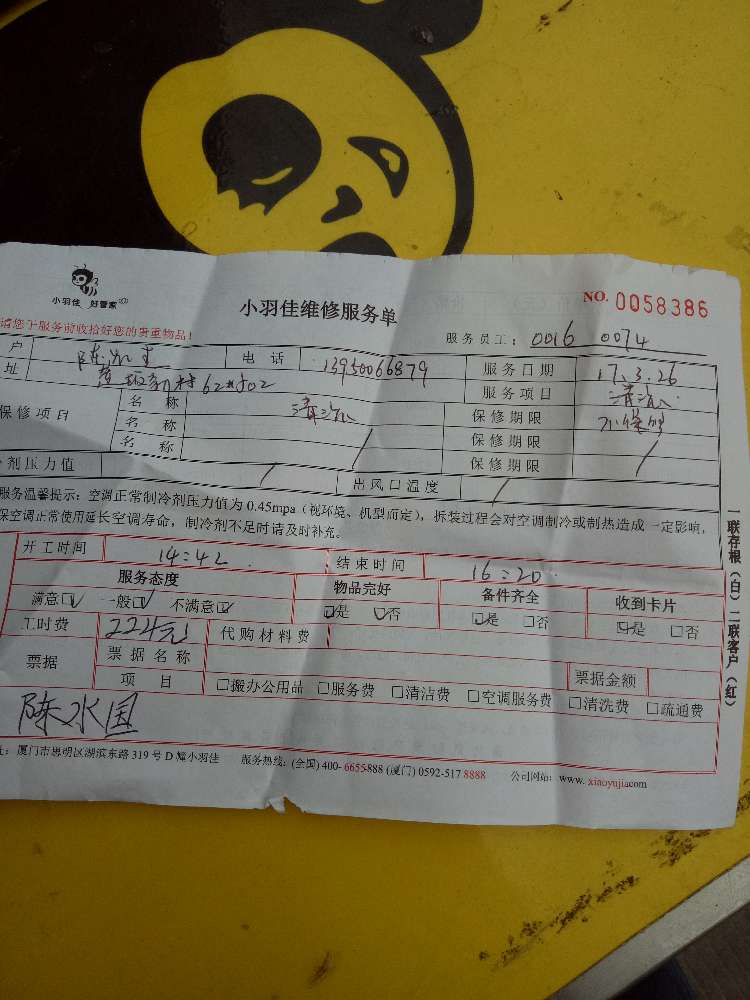 小羽佳 好管家
小羽佳维修服务单
NO. 0058386
请您于服务前收拾好您的贵重物品!
服务员工: 0016 0074
户 电话 13950066879 服务日期 17.3.26
址 服务项目 清洗
保修项目 名称 清洗 保修期限 不保修
名称 / 保修期限 /
名称 保修期限
剂压力值 / 出风口温度 /
服务温馨提示: 空调正常制冷剂压力值为0.45mpa(视环境、机型而定), 拆装过程会对空调制冷或制热造成一定影响,
保空调正常使用延长空调寿命, 制冷剂不足时请及时补充。
开工时间 14:42 结束时间 16:20
服务态度 物品完好 备件齐全 收到卡片
满意☑ 一般☑ 不满意☑ ☑是 ☑否 ☑是 □否 ☑是 □否
工时费 224元 代购材料费
票据 票据名称 票据金额
项目 □搬办公用品 □服务费 □清洁费 □空调服务费 □清洗费 □疏通费
陈水国
址: 厦门市思明区湖滨东路319号D幢小羽佳 服务热线: (全国) 400-6655888 (厦门) 0592-5178888 公司网站: www.xiaoyujia.com
一联存根(白) 二联客户(红)